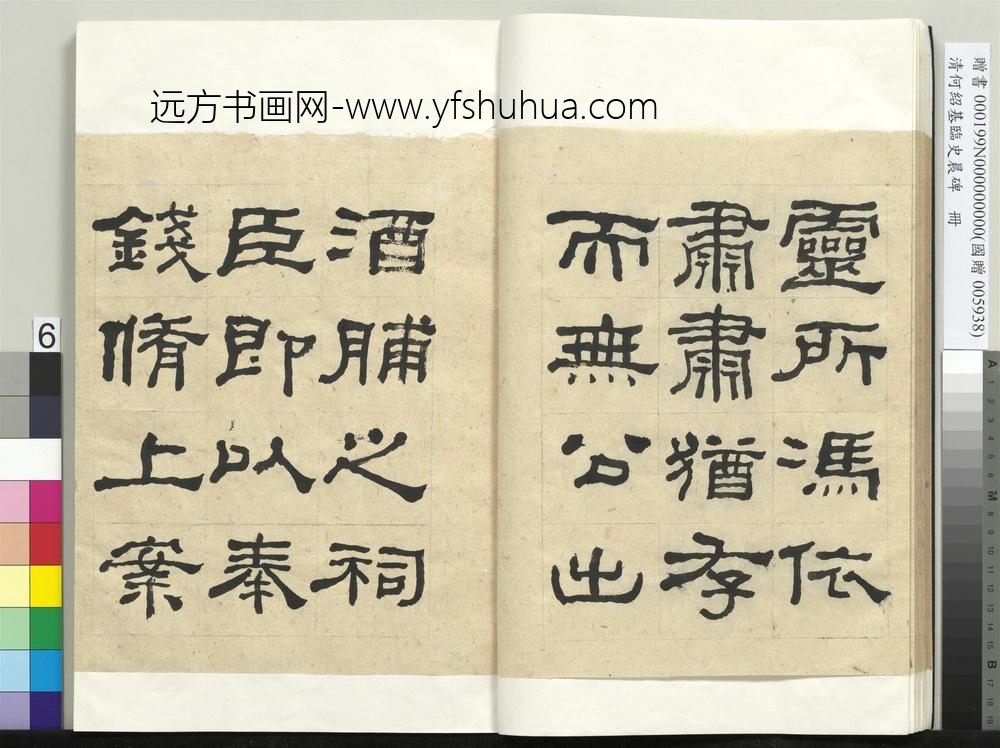 远方书画网-www.yfshuhua.com
靈所馮依
肅肅猶存
而無公出
酒脯之祠
臣即以奉
錢脩上案
贈書 000199N000000000(國贈 005938)
清何紹基臨史晨碑 冊
6
A
1
2
3
4
5
6
M
8
9
10
11
12
13
14
15
B
17
18
19